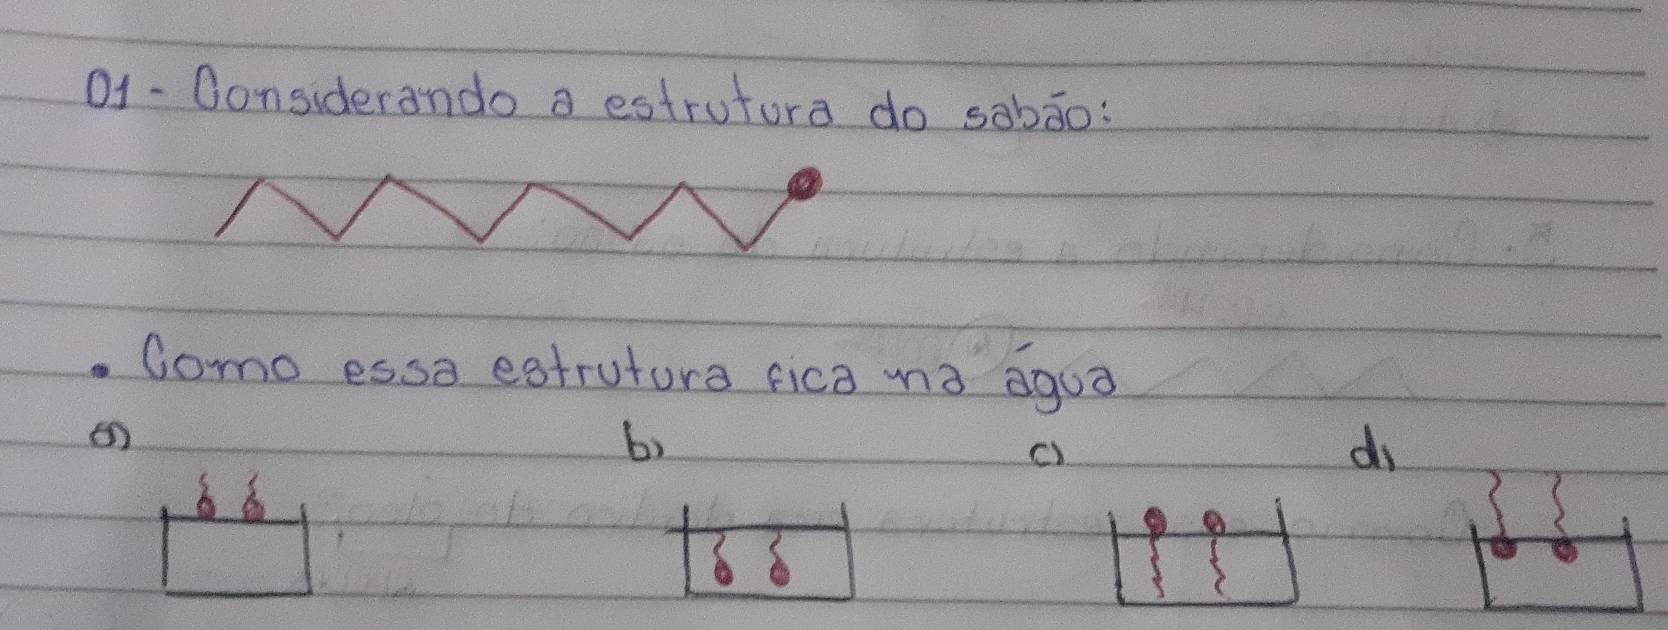 01 - Considerando a estrutura do sabão:
• Como essa estrutura fica na água
a) b) c) d)